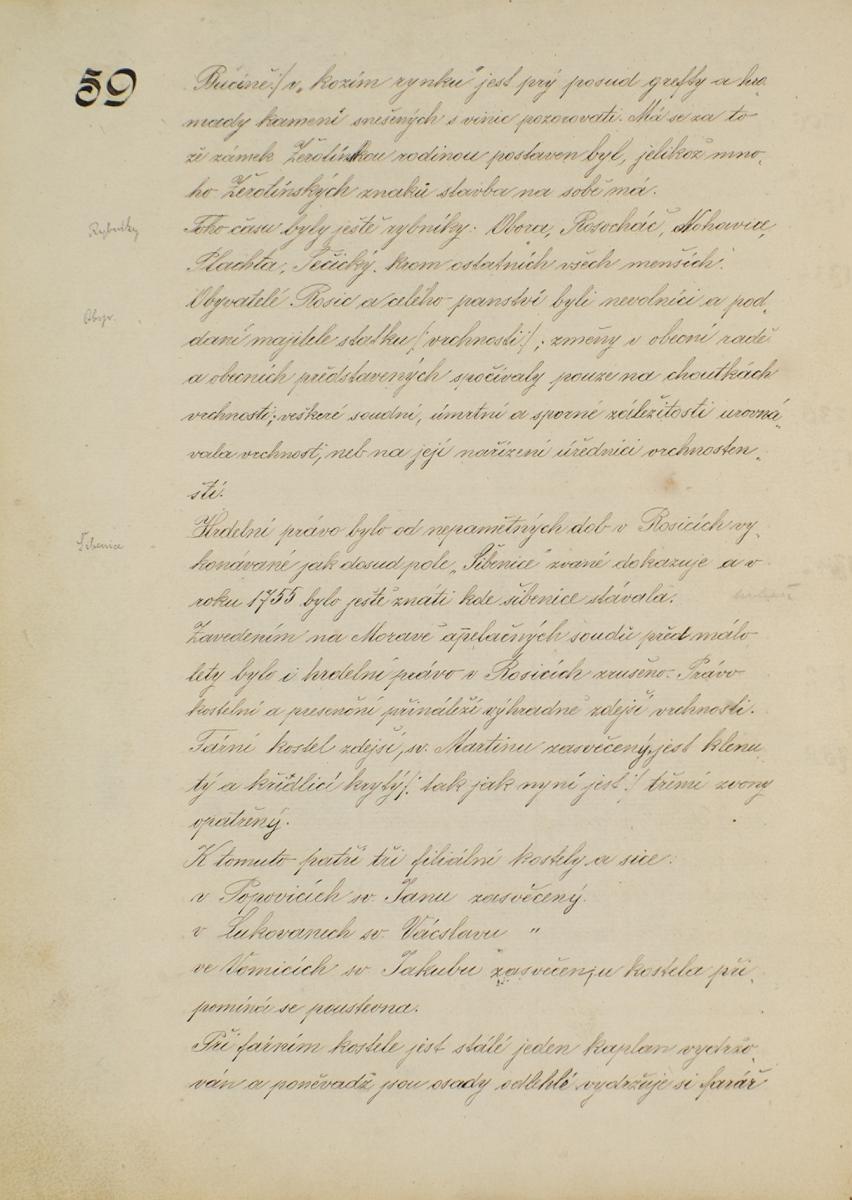 59
Bučíně:/ v „kozím rynku" jest prý posud grefty a hro-
mady kamení snešených s vinic pozorovati. Má se za to
že zámek Žerotínskou rodinou postaven byl, jelikož mno-
ho Žerotínských znaků stavba na sobě má.
Rybníky
Toho času byly ještě rybníky: Obora, Rosocháč, Nohavice,
Plachta, Sečický, krom ostatních všech menších.
Obyvatelé Rosic a celého panství byli nevolníci a pod-
Obyv.
daní majitele statku /:vrchnosti:/; změny v obecní radě
a obecních představených spočívaly pouze na choutkách
vrchnosti; veškeré soudní, úmrtní a sporné záležitosti urovná-
vala vrchnost, neb na její nařízení úředníci vrchnosten-
stí.
Hrdelní právo bylo od nepamětných dob v Rosicích vy-
Šibenice
konávané jak dosud pole „Šibenice" zvané dokazuje a v
roku 1755 bylo ještě znáti kde šibenice stávala.
Zavedením na Moravě apelačných soudů před málo
lety bylo i hrdelní právo v Rosicích zrušeno. Právo
kostelní a presenční přináleží výhradně zdejší vrchnosti.
Farní kostel zdejší, sv. Martinu zasvěcený, jest klenu-
tý a křidlicí krytý /: tak jak nyní jest :/ třemi zvony
opatřený.
K tomuto patří tři filiální kostely a sice:
v Popovicích sv. Janu zasvěcený
v Lukovanech sv. Václavu "
ve Vomicích sv. Jakubu zasvěceného kostela při-
pomíná se poustevna.
Při farním kostele jest stálé jeden kaplan vydržo-
ván a poněvadž jsou osady odlehlé vydržuje si farář